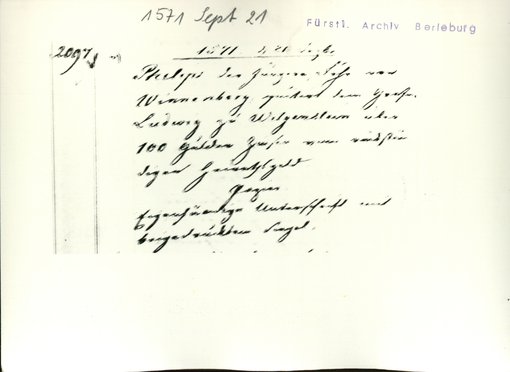 1571 Sept 21
Fürstl. Archiv Berleburg
2097
1571. d. 21 Septbr
Philips der Jüngere Herr von
Winnenberg quitirt dem Grafen
Ludwig zu Witgenstein über
100 Gulden Zinsen vom rückstän
digen Heirathsgeld
Papier
Eigenhändige Unterschrift mit
beigedrücktem Siegel.